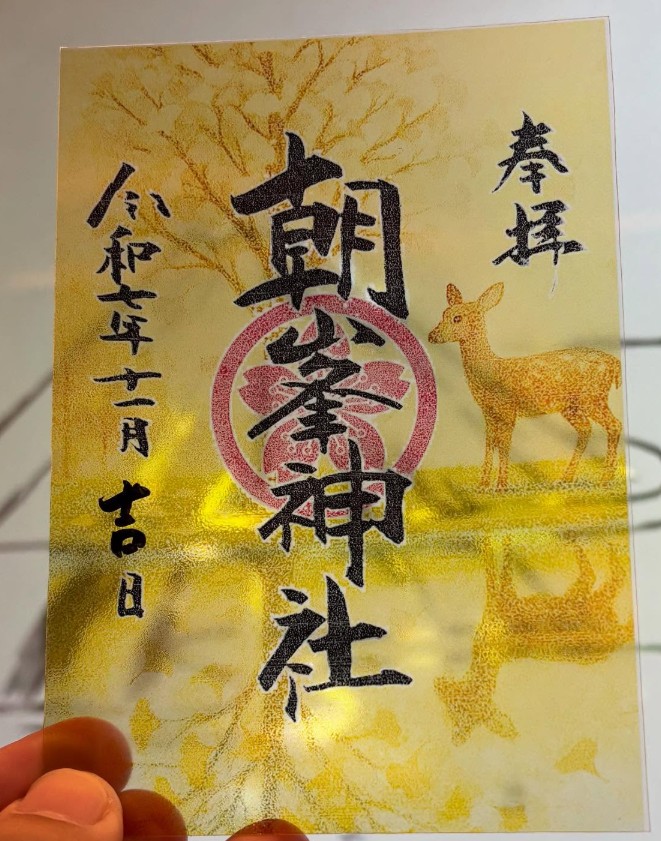 奉拝
朝峯神社
令和七年十一月吉日